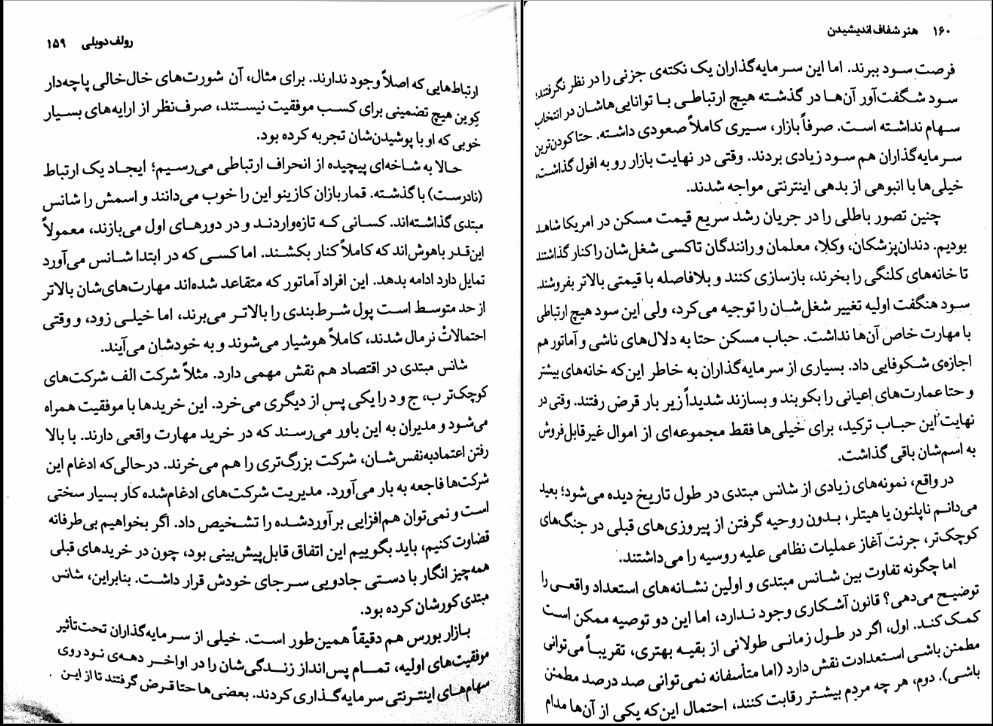 رولف دوبلی ۱۵۹
ارتباط‌هایی که اصلاً وجود ندارند. برای مثال، آن شورت‌های خال‌خالی پاچه‌دار
کوین هیچ تضمینی برای کسب موفقیت نیستند، صرف‌نظر از ارایه‌های بسیار
خوبی که او با پوشیدن‌شان تجربه کرده بود.
حالا به شاخه‌ای پیچیده از انحراف ارتباطی می‌رسیم؛ ایجاد یک ارتباط
(نادرست) با گذشته. قماربازان کازینو این را خوب می‌دانند و اسمش را شانس
مبتدی گذاشته‌اند. کسانی که تازه‌واردند و در دورهای اول می‌بازند، معمولاً
این‌قدر باهوش‌اند که کاملاً کنار بکشند. اما کسی که در ابتدا شانس می‌آورد
تمایل دارد ادامه بدهد. این افراد آماتور که متقاعد شده‌اند مهارت‌های‌شان بالاتر
از حد متوسط است پول شرط‌بندی را بالاتر می‌برند، اما خیلی زود، و وقتی
احتمالاتْ نرمال شدند، کاملاً هوشیار می‌شوند و به خودشان می‌آیند.
شانس مبتدی در اقتصاد هم نقش مهمی دارد. مثلاً شرکت الف شرکت‌های
کوچک‌تر ب، ج و د را یکی پس از دیگری می‌خرد. این خریدها با موفقیت همراه
می‌شود و مدیران به این باور می‌رسند که در خرید مهارت واقعی دارند. با بالا
رفتن اعتمادبه‌نفس‌شان، شرکت بزرگ‌تری را هم می‌خرند. درحالی‌که ادغام این
شرکت‌ها فاجعه به بار می‌آورد. مدیریت شرکت‌های ادغام‌شده کار بسیار سختی
است و نمی‌توان هم‌افزایی برآوردشده را تشخیص داد. اگر بخواهیم بی‌طرفانه
قضاوت کنیم، باید بگوییم این اتفاق قابل‌پیش‌بینی بود، چون در خریدهای قبلی
همه‌چیز انگار با دستی جادویی سر جای خودش قرار داشت. بنابراین، شانس
مبتدی کورشان کرده بود.
بازار بورس هم دقیقاً همین‌طور است. خیلی از سرمایه‌گذاران تحت‌تأثیر
موفقیت‌های اولیه، تمام پس‌انداز زندگی‌شان را در اواخر دهه‌ی نود روی
سهام‌های اینترنتی سرمایه‌گذاری کردند. بعضی‌ها حتا قرض گرفتند تا از این
۱۶۰ هنر شفاف اندیشیدن
فرصت سود ببرند. اما این سرمایه‌گذاران یک نکته‌ی جزئی را در نظر نگرفتند؛
سود شگفت‌آور آن‌ها در گذشته هیچ ارتباطی با توانایی‌هاشان در انتخاب
سهام نداشته است. صرفاً بازار، سیری کاملاً صعودی داشته. حتا کودن‌ترین
سرمایه‌گذاران هم سود زیادی بردند. وقتی در نهایت بازار رو به افول گذاشت،
خیلی‌ها با انبوهی از بدهی اینترنتی مواجه شدند.
چنین تصور باطلی را در جریان رشد سریع قیمت مسکن در امریکا شاهد
بودیم. دندان‌پزشکان، وکلا، معلمان و رانندگان تاکسی شغل‌شان را کنار گذاشتند
تا خانه‌های کلنگی را بخرند، بازسازی کنند و بلافاصله با قیمتی بالاتر بفروشند.
سود هنگفت اولیه تغییر شغل‌شان را توجیه می‌کرد، ولی این سود هیچ ارتباطی
با مهارت خاص آن‌ها نداشت. حباب مسکن حتا به دلال‌های ناشی و آماتور هم
اجازه‌ی شکوفایی داد. بسیاری از سرمایه‌گذاران به خاطر این‌که خانه‌های بیشتر
و حتا عمارت‌های اعیانی را بکوبند و بسازند شدیداً زیر بار قرض رفتند. وقتی در
نهایت این حباب ترکید، برای خیلی‌ها فقط مجموعه‌ای از اموال غیرقابل‌فروش
به اسم‌شان باقی گذاشت.
در واقع، نمونه‌های زیادی از شانس مبتدی در طول تاریخ دیده می‌شود؛ بعید
می‌دانم ناپلئون یا هیتلر، بدون روحیه گرفتن از پیروزی‌های قبلی در جنگ‌های
کوچک‌تر، جرئت آغاز عملیات نظامی علیه روسیه را می‌داشتند.
اما چگونه تفاوت بین شانس مبتدی و اولین نشانه‌های استعداد واقعی را
توضیح می‌دهی؟ قانون آشکاری وجود ندارد، اما این دو توصیه ممکن است
کمک کند. اول، اگر در طول زمانی طولانی از بقیه بهتری، تقریباً می‌توانی
مطمئن باشی استعدادت نقش دارد (اما متأسفانه نمی‌توانی صد درصد مطمئن
باشی). دوم، هر چه مردم بیشتر رقابت کنند، احتمال این‌که یکی از آن‌ها مدام